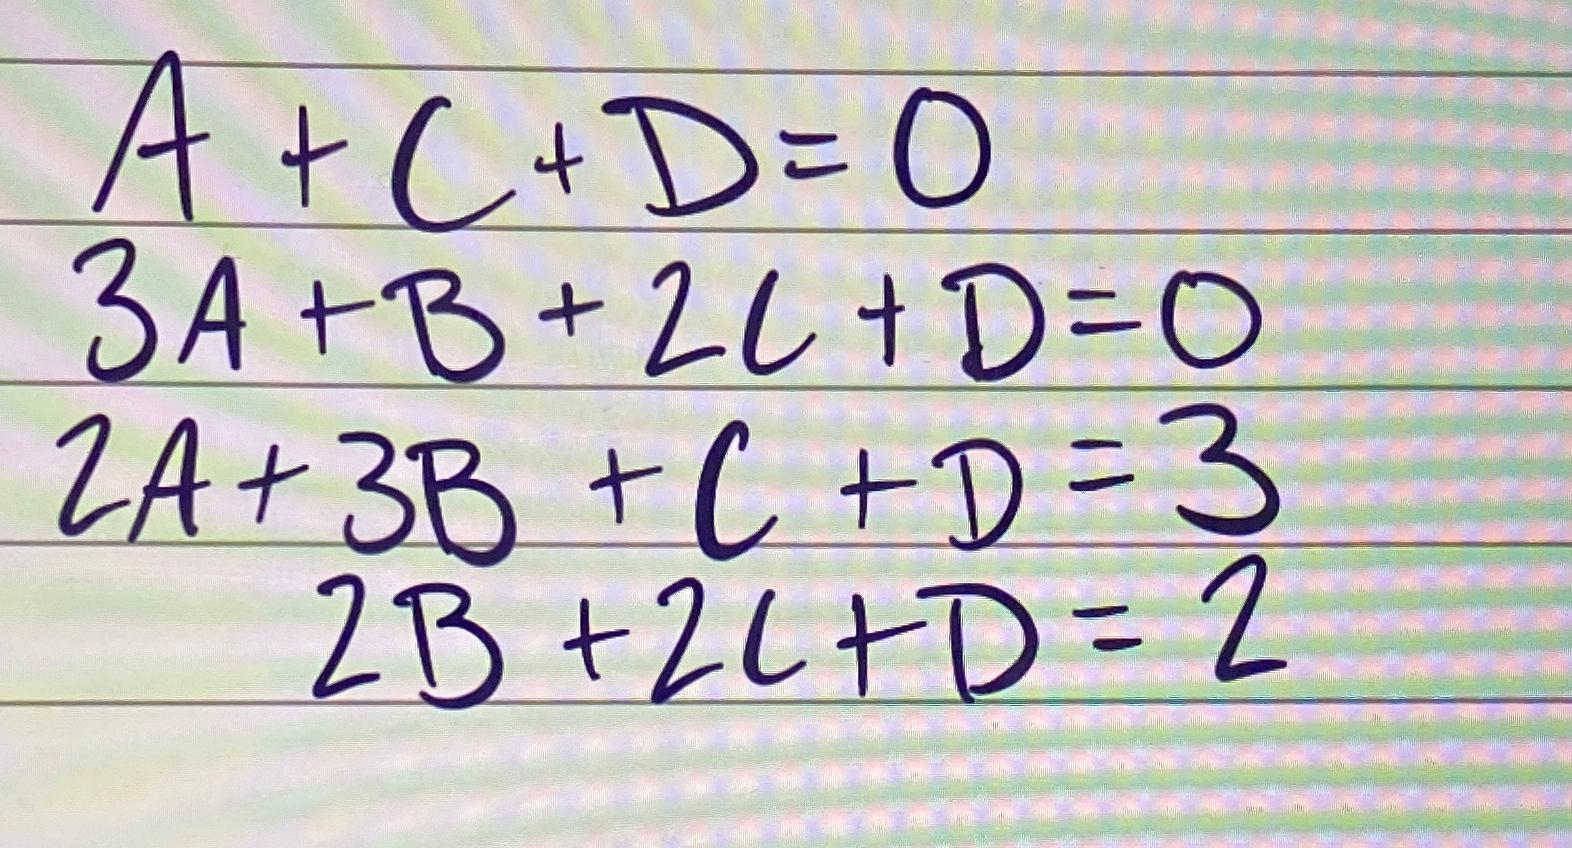 A + C + D = 0
3A + B + 2C + D = 0
2A + 3B + C + D = 3
2B + 2C + D = 2